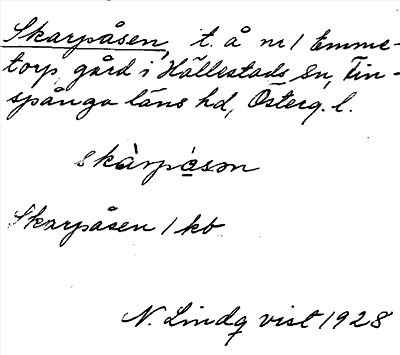 Skarpåsen, t. å nr 1 Emme-
torp gård i Hällestads sn, Fin-
spånga läns hd, Österg. l.
skàrpå̀sən
Skarpåsen 1 kb
N. Lindqvist 1928